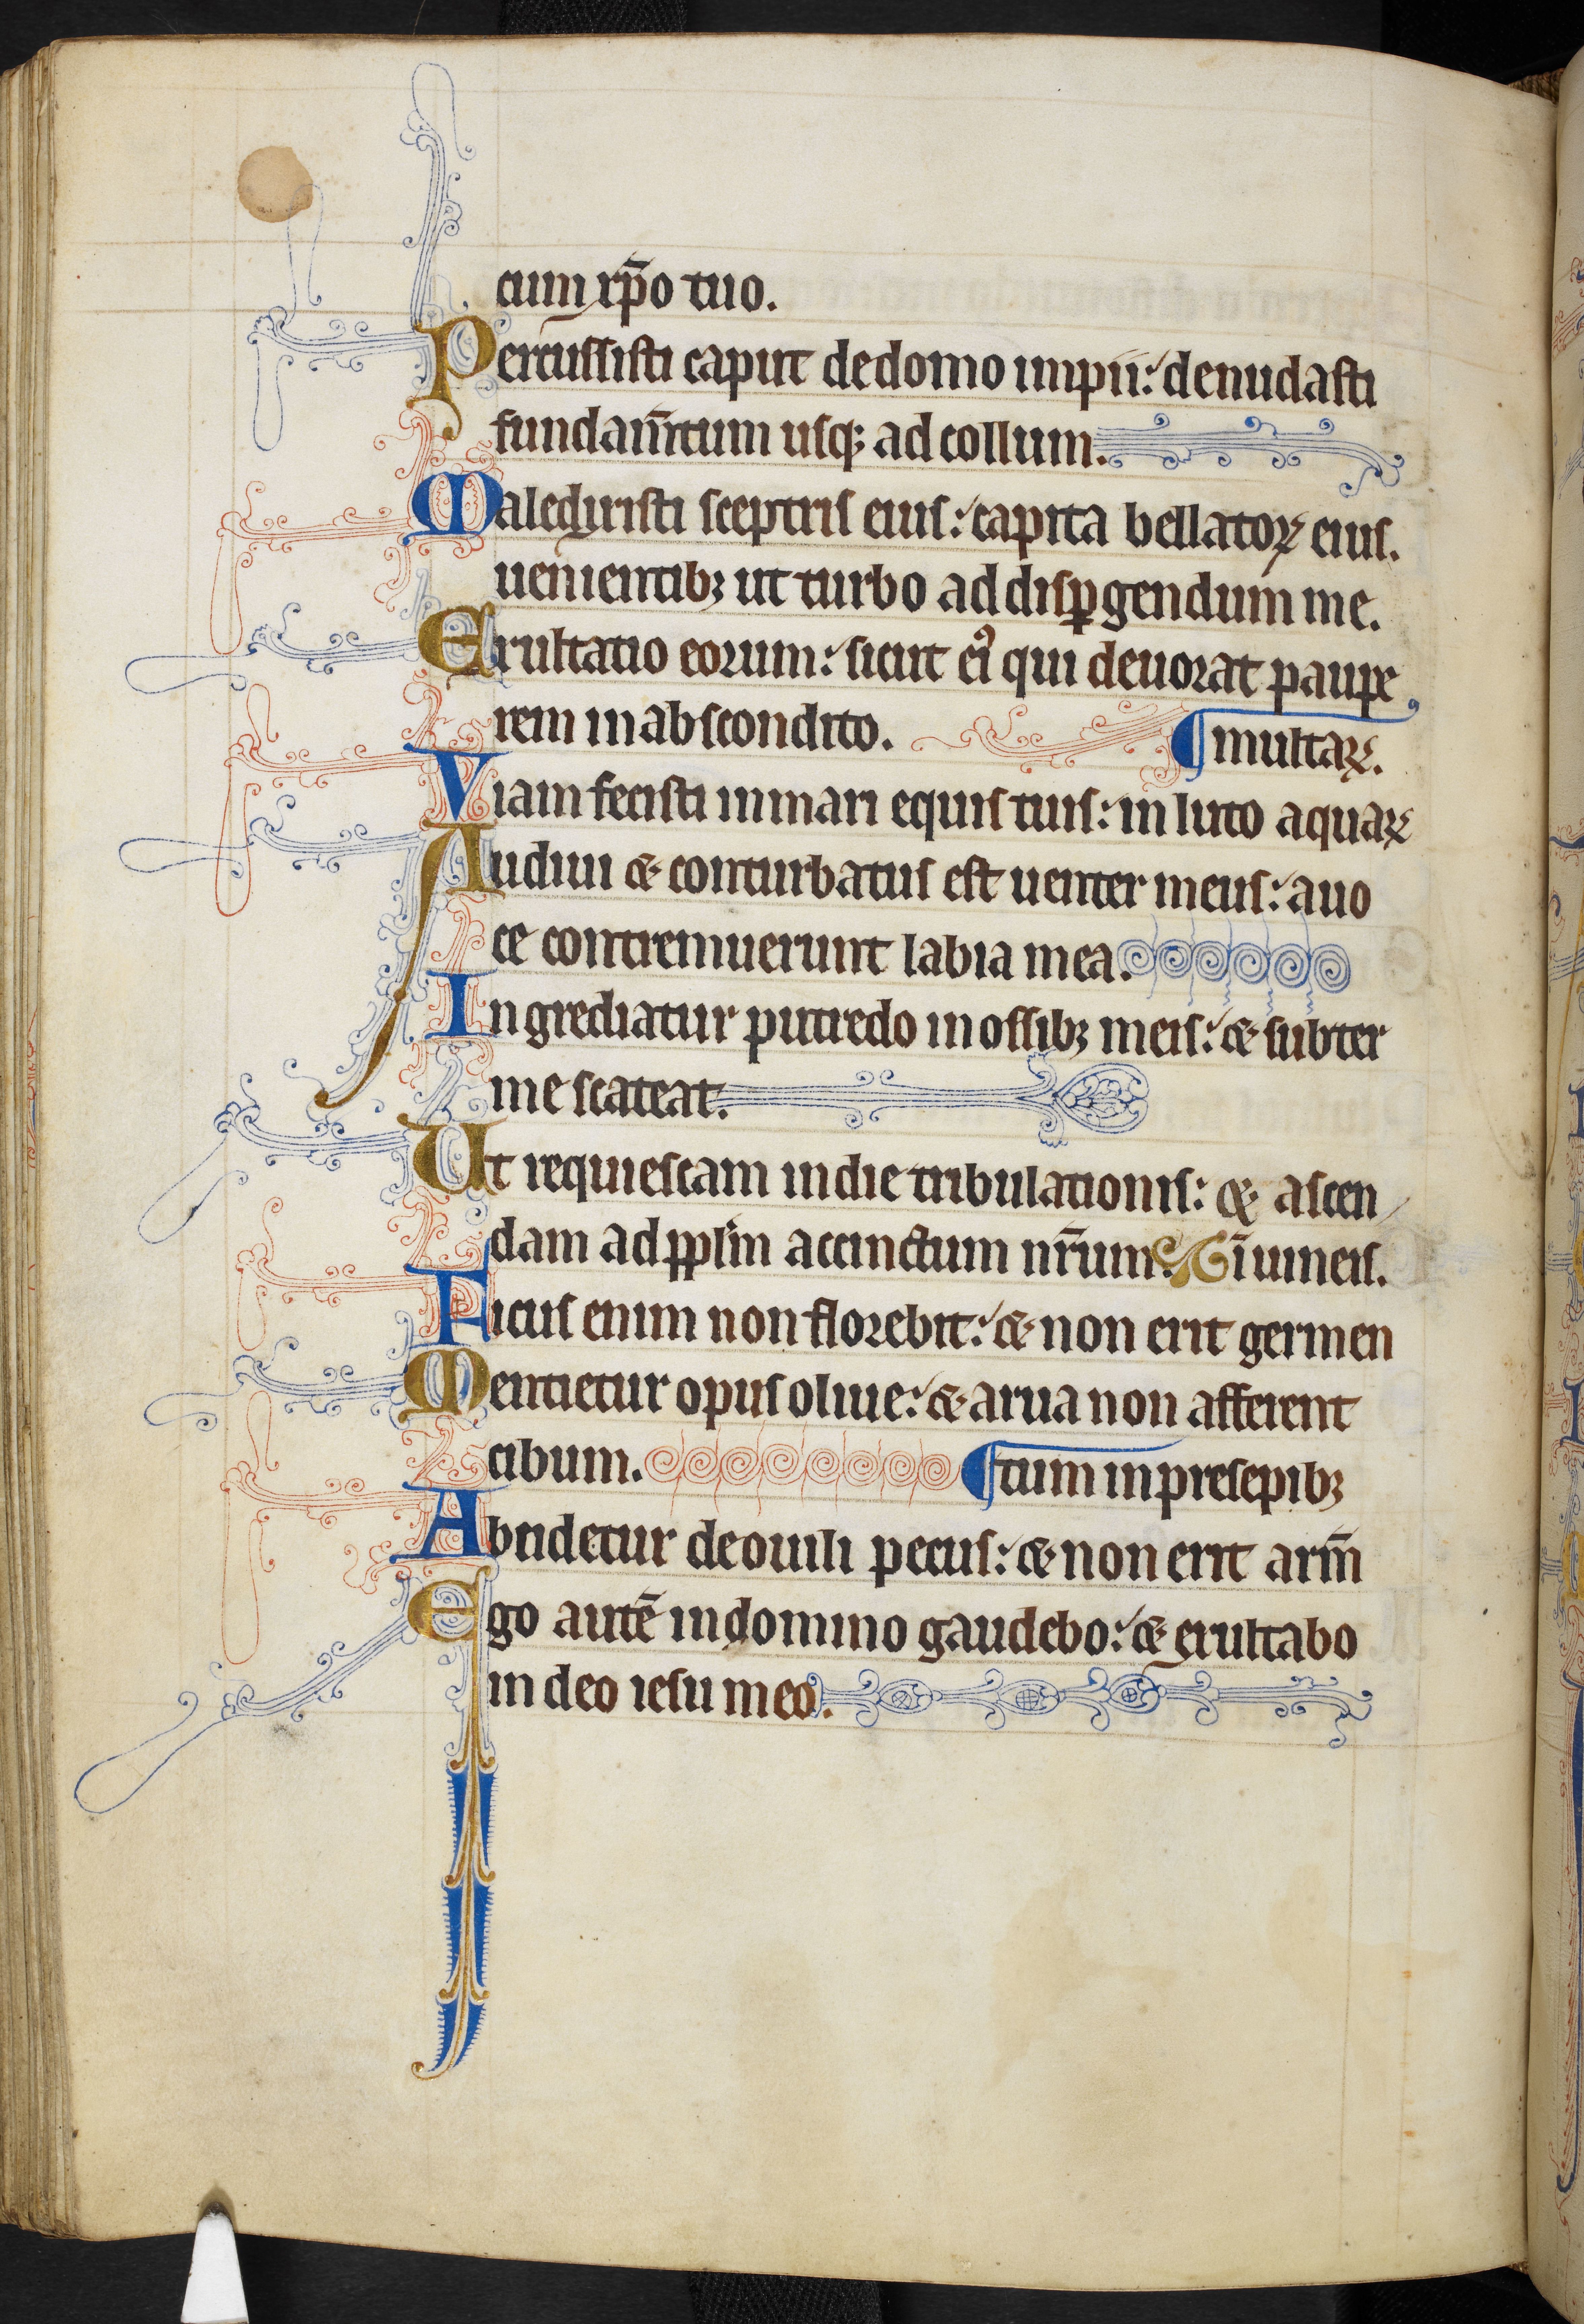 cum xp̄o tuo.
Percussisti caput de domo impii: denudasti
fundam̄tum usq; ad collum.
Maledixisti sceptris eius: capita bellatoꝝ eius.
uenientibꝫ ut turbo ad disꝑgendum me.
Exultatio eorum: sicut ei᷒ qui deuorat pauꝑe
rem in abscondito. ¶ multaꝝ.
Viam fecisti in mari equis tuis: in luto aquaꝝ
Audiui & conturbatus est uenter meus: a uo
ce contremuerunt labia mea.
Ingrediatur putredo in ossibꝫ meis: & subter
me scateat.
Ut requiescam in die tribulationis: & ascen
dam ad pplm̄ accinctum nr̄um. ī uineis.
Ficus enim non florebit: & non erit germen
Mentietur opus oliue: & arua non afferent
cibum. ¶ tum in presepibꝫ
Abscidetur de ouili pecus: & non erit arm̄
Ego autē in domino gaudebo: & exultabo
in deo iesu meo.